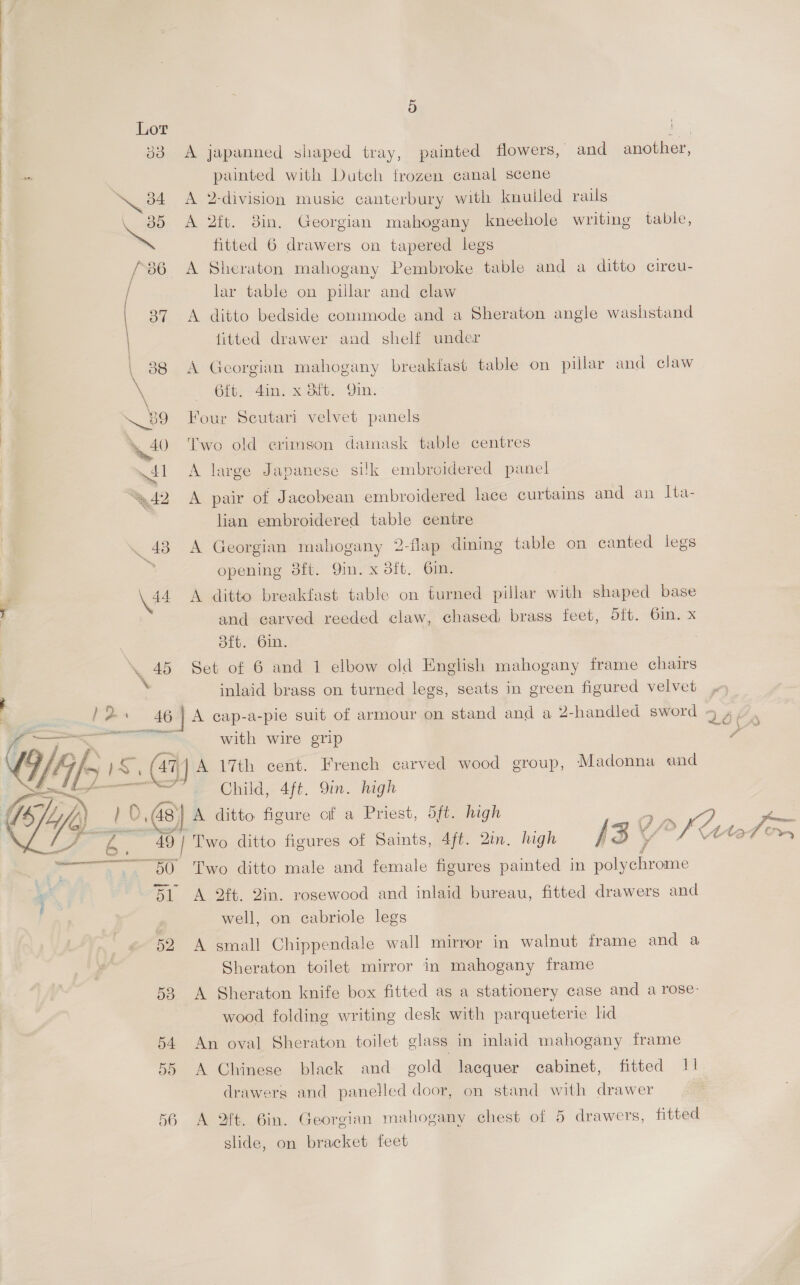 5
Lot
33 A japanned shaped tray, painted flowers, and another,
painted with Dutch frozen canal scene
34 A 2-division music canterbury with knulled rails
35 A 2ft. 3in. Georgian mahogany kneehole writing table,
fitted 6 drawers on tapered legs
36 A Sheraton mahogany Pembroke table and a ditto circu-
lar table on pillar and claw
37 A ditto bedside commode and a Sheraton angle washstand
fitted drawer and shelf under
38 A Georgian mahogany breakfast table on pillar and claw
6ft. 4in. x 3ft. 9in.
39 Four Scutari velvet panels
40 Two old crimson damask table centres
41 A large Japanese silk embroidered panel
42 A pair of Jacobean embroidered lace curtains and an Ita-
lian embroidered table centre
43 A Georgian mahogany 2-flap dining table on canted legs
opening 3ft. 9in. x 3ft. 6in.
44 A ditto breakfast table on turned pillar with shaped base
and carved reeded claw, chased brass feet, 5ft. 6in. x
3ft. 6in.
45 Set of 6 and 1 elbow old English mahogany frame chairs
inlaid brass on turned legs, seats in green figured velvet
12. 46 A cap-a-pie suit of armour on stand and a 2-handled sword
with wire grip
15. 47 A 17th cent. French carved wood group, Madonna and
Child, 4ft. 9in. high
10. 48 A ditto figure of a Priest, 5ft. high
6. 49 Two ditto figures of Saints, 4ft. 2in. high 13
50 Two ditto male and female figures painted in polychrome
51 A 2ft. 2in. rosewood and inlaid bureau, fitted drawers and
well, on cabriole legs
52 A small Chippendale wall mirror in walnut frame and a
Sheraton toilet mirror in mahogany frame
53 A Sheraton knife box fitted as a stationery case and a rose-
wood folding writing desk with parqueterie lid
54 An oval Sheraton toilet glass in inlaid mahogany frame
55 A Chinese black and gold lacquer cabinet, fitted 11
drawers and panelled door, on stand with drawer
56 A 2ft. 6in. Georgian mahogany chest of 5 drawers, fitted
slide, on bracket feet